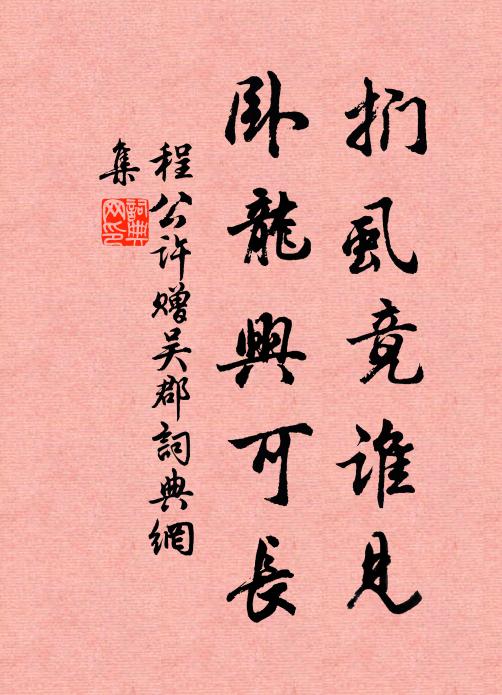 捫虱竟誰見
臥龍興可長
程公許贈吴郡詞典網
集
詞典网印